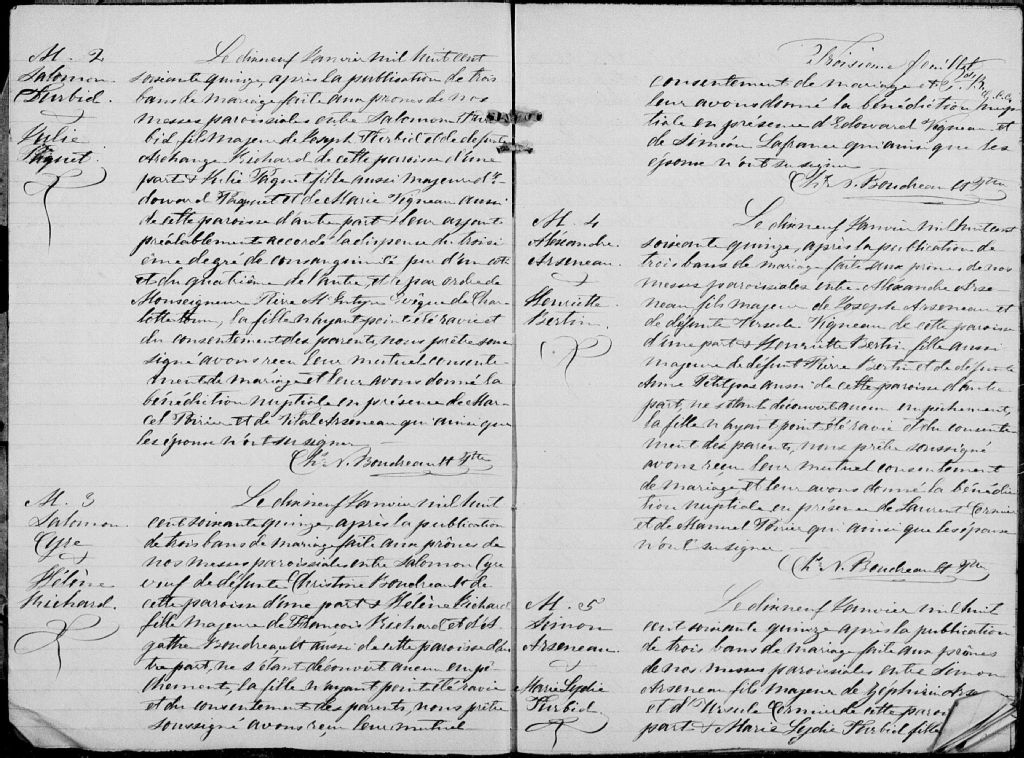 M. 2
Salomon
Turbid
&
Julie
Paquet
Le dixneuf Janvier mil huit cent
soixante quinze, après la publication de trois
bans de mariage faite aux prônes de nos
messes paroissiales entre Salomon Tur
bid fils majeur de Joseph Turbid et de défunte
Archange Richard de cette paroisse d'une
part & Julie Paquet fille aussi majeure d'E
douard Paquet et de Marie Vigneau aussi
de cette paroisse d'autre part & leur ayant
préalablement accordé la dispense du troisi
ème degré de consanguinité pu d'un côté
et du quatrième de l'autre, et ce par ordre de
Monseigneur Pierre McIntyre Evêque de Char
lottetown, la fille n'ayant point été ravie et
du consentement des parents, nous prêtre sous
signé avons reçu leur mutuel consente
ment de mariage et leur avons donné la
bénédiction nuptiale en présence de Mar
cel Poirier et de Vital Arseneau qui ainsi que
les époux n'ont su signer
Chs. N. Boudreault Ptre
M. 3
Salomon
Cyre
&
Hélène
Richard.
Le dixneuf Janvier mil huit
cent soixante quinze, après la publication
de trois bans de mariage faite aux prônes de
nos messes paroissiales entre Salomon Cyre
veuf de défunte Christine Boudreault de
cette paroisse d'une part & Hélène Richard
fille majeure de François Richard et d'A
gathe Boudreault aussi de cette paroisse d'au
tre part, ne s'étant découvert aucun empê
chement, la fille n'ayant point été ravie
et du consentement des parents, nous prêtre
soussigné avons reçu leur mutuel
Troisième feuillet
consentement de mariage et
leur avons donné la bénédiction nup
tiale en présence d'Edouard Vigneau et
de Siméon Lafrance qui ainsi que les
époux n'ont su signer
Chs. N. Boudreault Ptre
M. 4
Alexandre
Arseneau.
&
Henriette
Bertin.
Le dixneuf Janvier mil huit cent
soixante quinze, après la publication de
trois bans de mariage faite aux prônes de nos
messes paroissiales entre Alexandre Arse
neau fils majeur de Joseph Arseneau et
de défunte Ursule Vigneau de cette paroisse
d'une part & Henriette Bertin fille aussi
majeure de défunt Pierre Bertin et de défunte
Anne Petitpas aussi de cette paroisse d'autre
part, ne s'étant découvert aucun empêchement,
la fille n'ayant point été ravie et du consente
ment des parents, nous prêtre soussigné
avons reçu leur mutuel consentement
de mariage et leur avons donné la bénédic
tion nuptiale en présence de Laurent Cormier
et de Manuel Poirier qui ainsi que les époux
n'ont su signer
Chs. N. Boudreault Ptre
M. 5
Simon
Arseneau.
&
Marie Lydie
Turbid.
Le dixneuf Janvier mil huit
cent soixante quinze après la publication
de trois bans de mariage faite aux prônes
de nos messes paroissiales entre Simon
Arseneau fils majeur de Zéphirin Arse
et d'Ursule Cormier de cette paroi
part & Marie Lydie Turbid fille